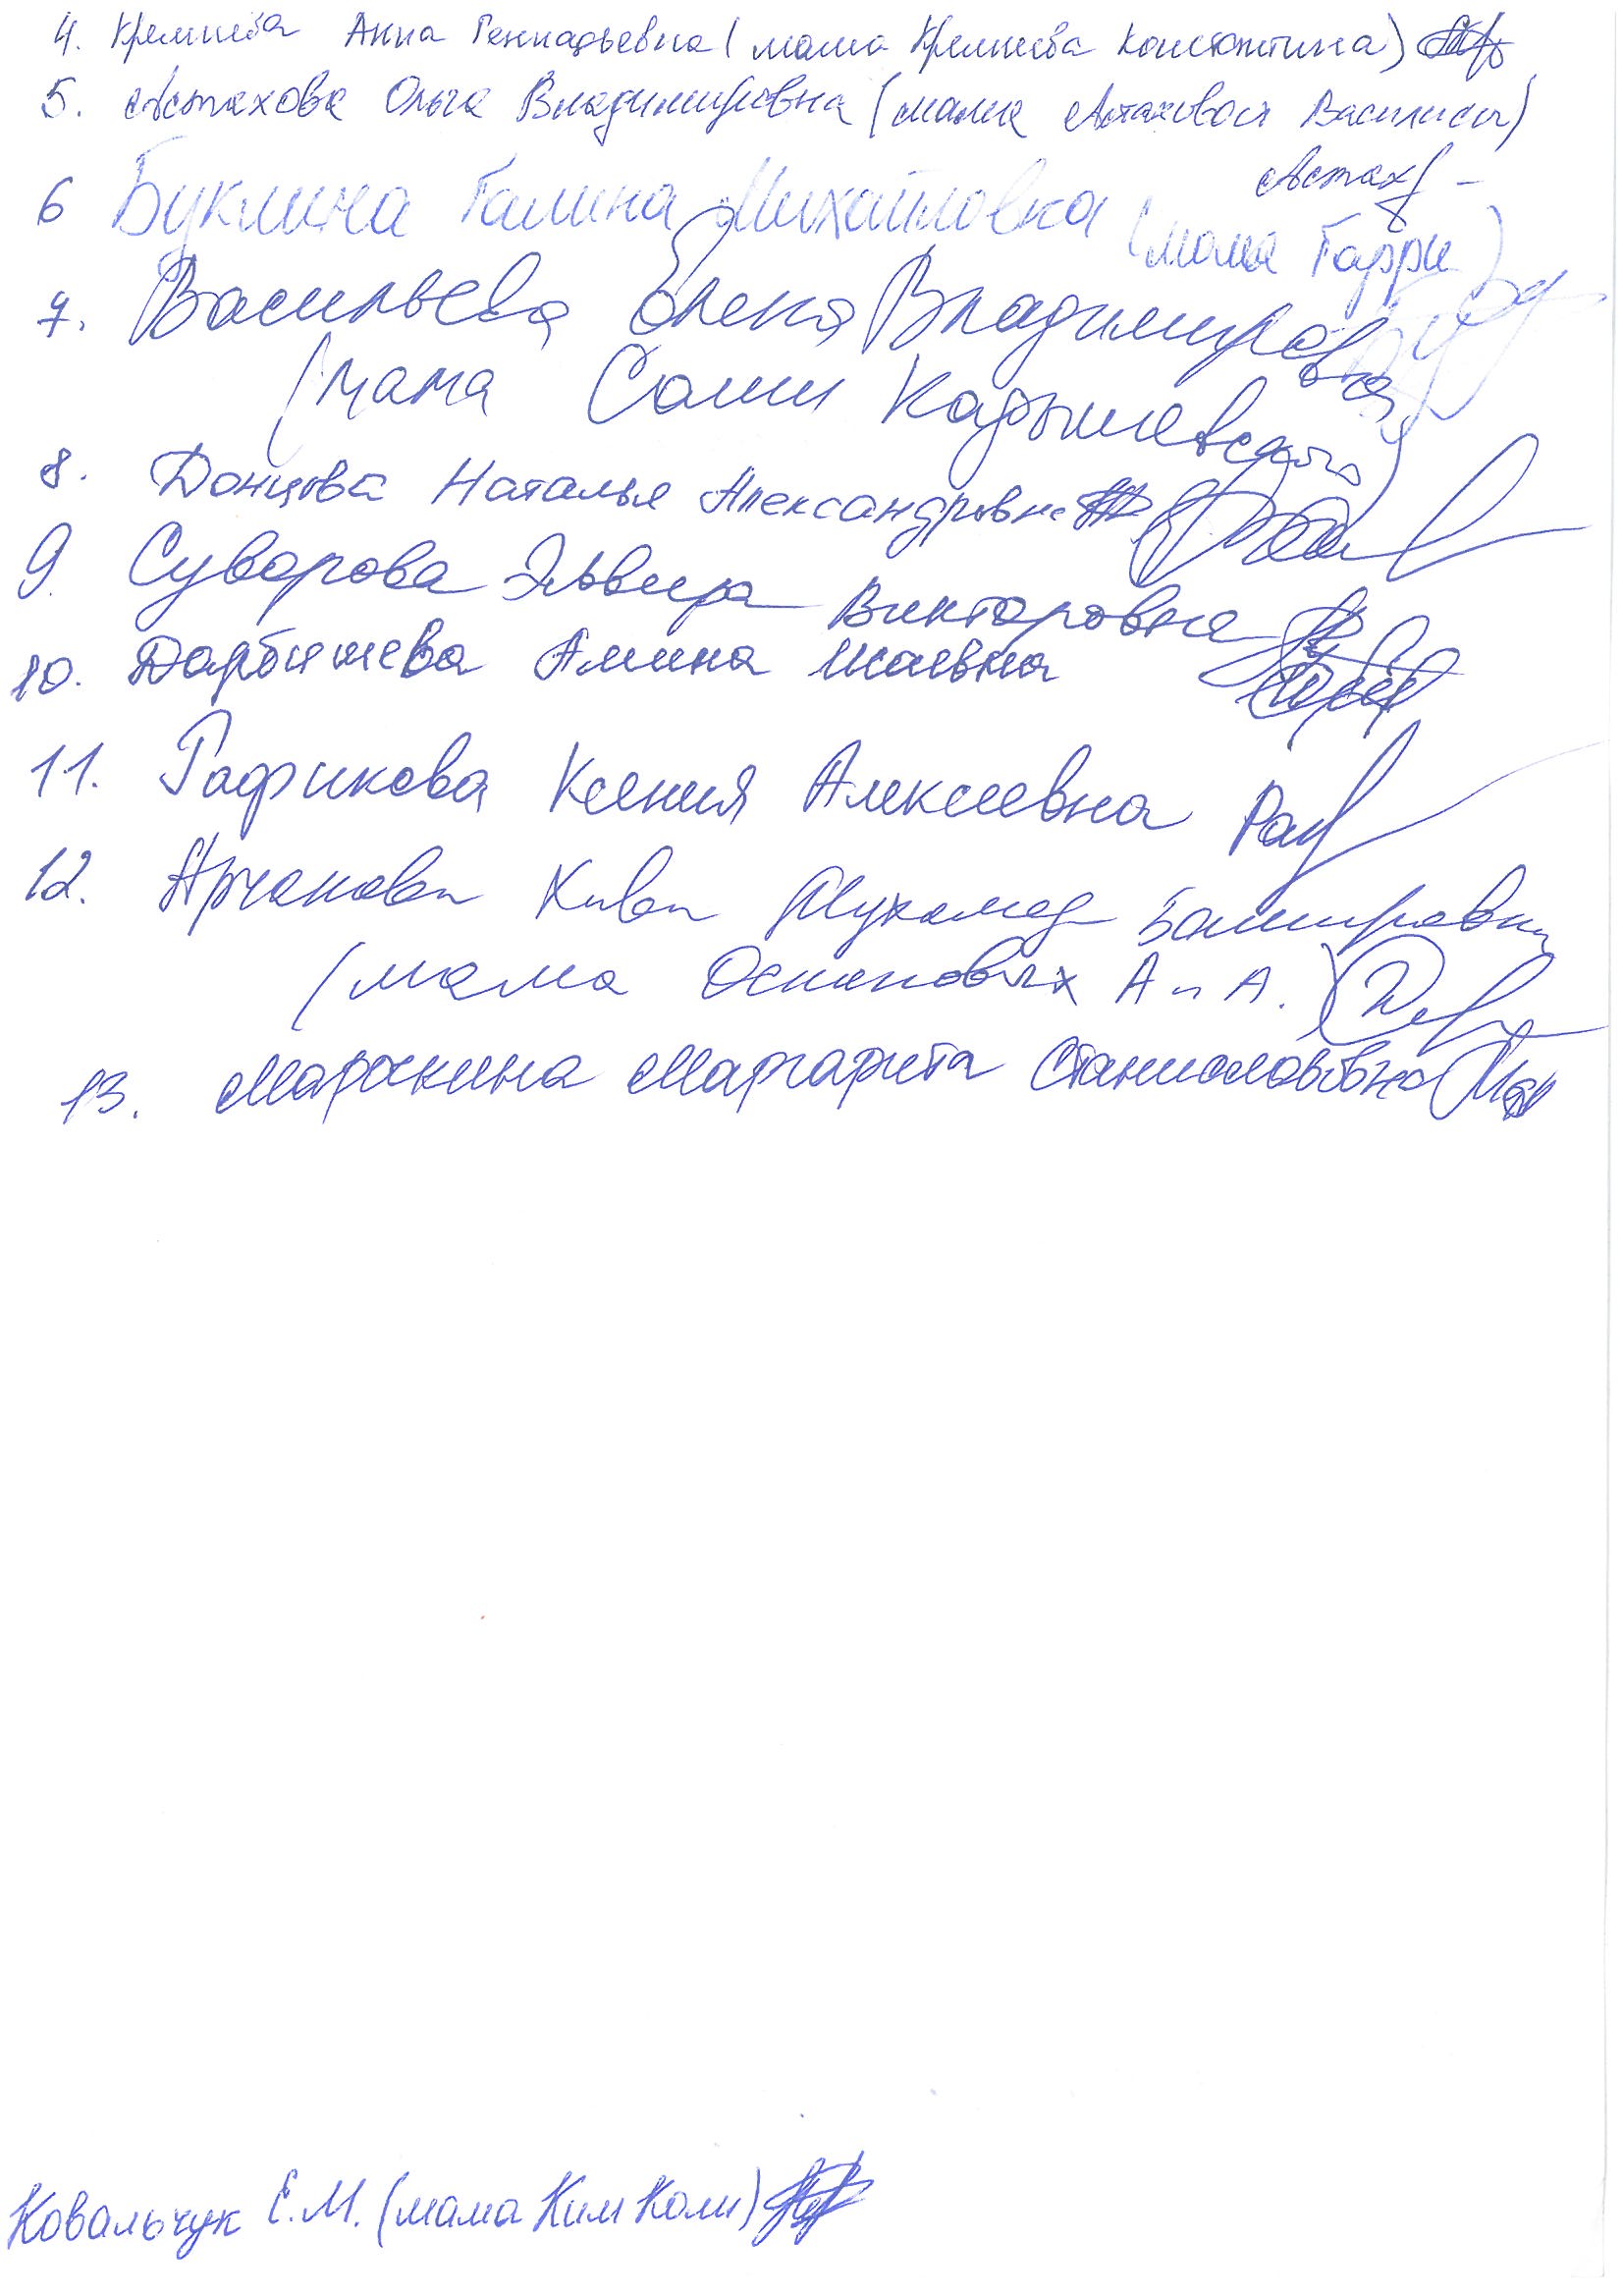 4. Кремнева Анна Геннадьевна (мама Кремнева Константина)
5. Астахова Ольга Владимировна (мама Астаховой Василисы)
Астах
6 Буклина Галина Михайловна (мама Гарри)
7. Васильева Олеся Владимировна
(мама Саши Кадышевской)
8. Донцова Наталья Александровна
9. Суворова Эльвира Викторовна
10. Дарбишева Амина Исаевна
11. Рафикова Ксения Алексеевна
12. Арчакова Хива Мухамед-Башировна
(мама Оскановых А и А.)
13. Марочкина Маргарита Станиславовна
Ковальчук Е.М. (мама Ким Коли)